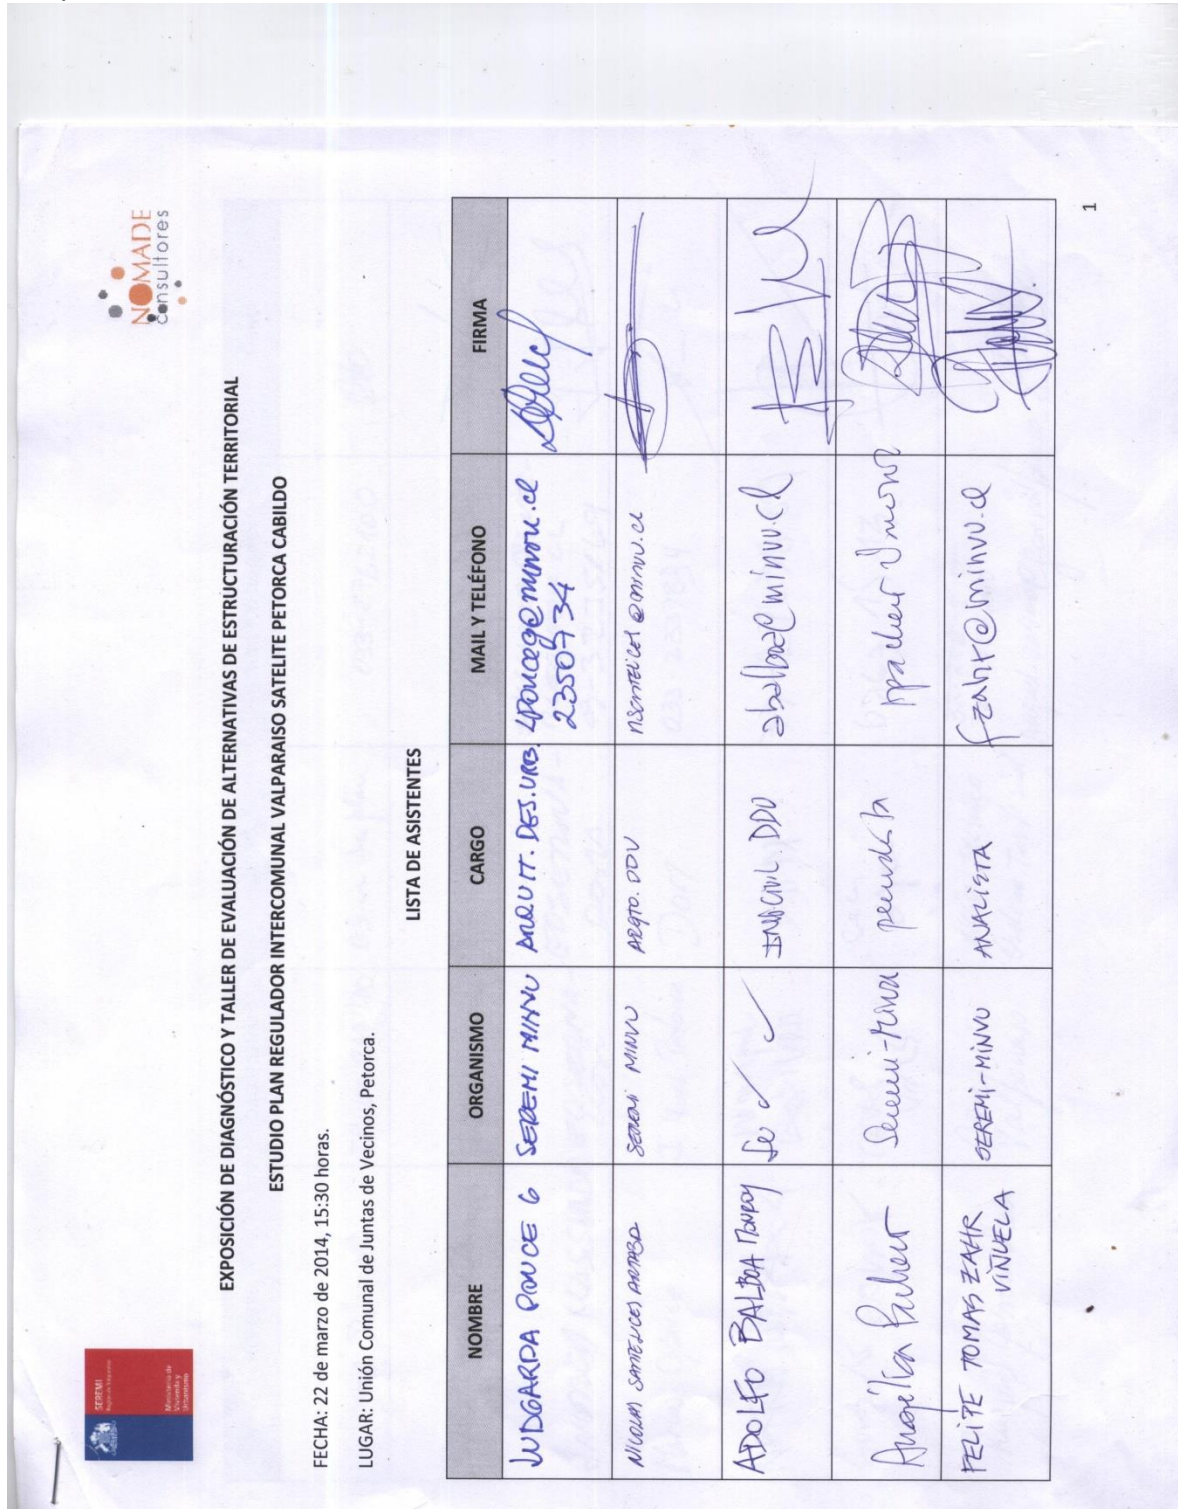 SEREMI
Ministerio de
Vivienda y
Urbanismo
NOMADE
consultores
EXPOSICIÓN DE DIAGNÓSTICO Y TALLER DE EVALUACIÓN DE ALTERNATIVAS DE ESTRUCTURACIÓN TERRITORIAL
ESTUDIO PLAN REGULADOR INTERCOMUNAL VALPARAISO SATELITE PETORCA CABILDO
FECHA: 22 de marzo de 2014, 15:30 horas.
LUGAR: Unión Comunal de Juntas de Vecinos, Petorca.
LISTA DE ASISTENTES
NOMBRE ORGANISMO CARGO MAIL Y TELÉFONO FIRMA
LUDGARDA PONCE G SEREMI MINVU ARQUIT. DES. URB. lponceg@minvu.cl
2350734
NICOLAS SEREMI MINVU ARQTO. DDU @minvu.cl
ADOLFO BALBOA MONROY ING CIVIL DDU abalboa@minvu.cl
Angélica Seremi-Minvu periodista
FELIPE TOMAS ZAHR SEREMI-MINVU ANALISTA fzahr@minvu.cl
VIÑUELA
1